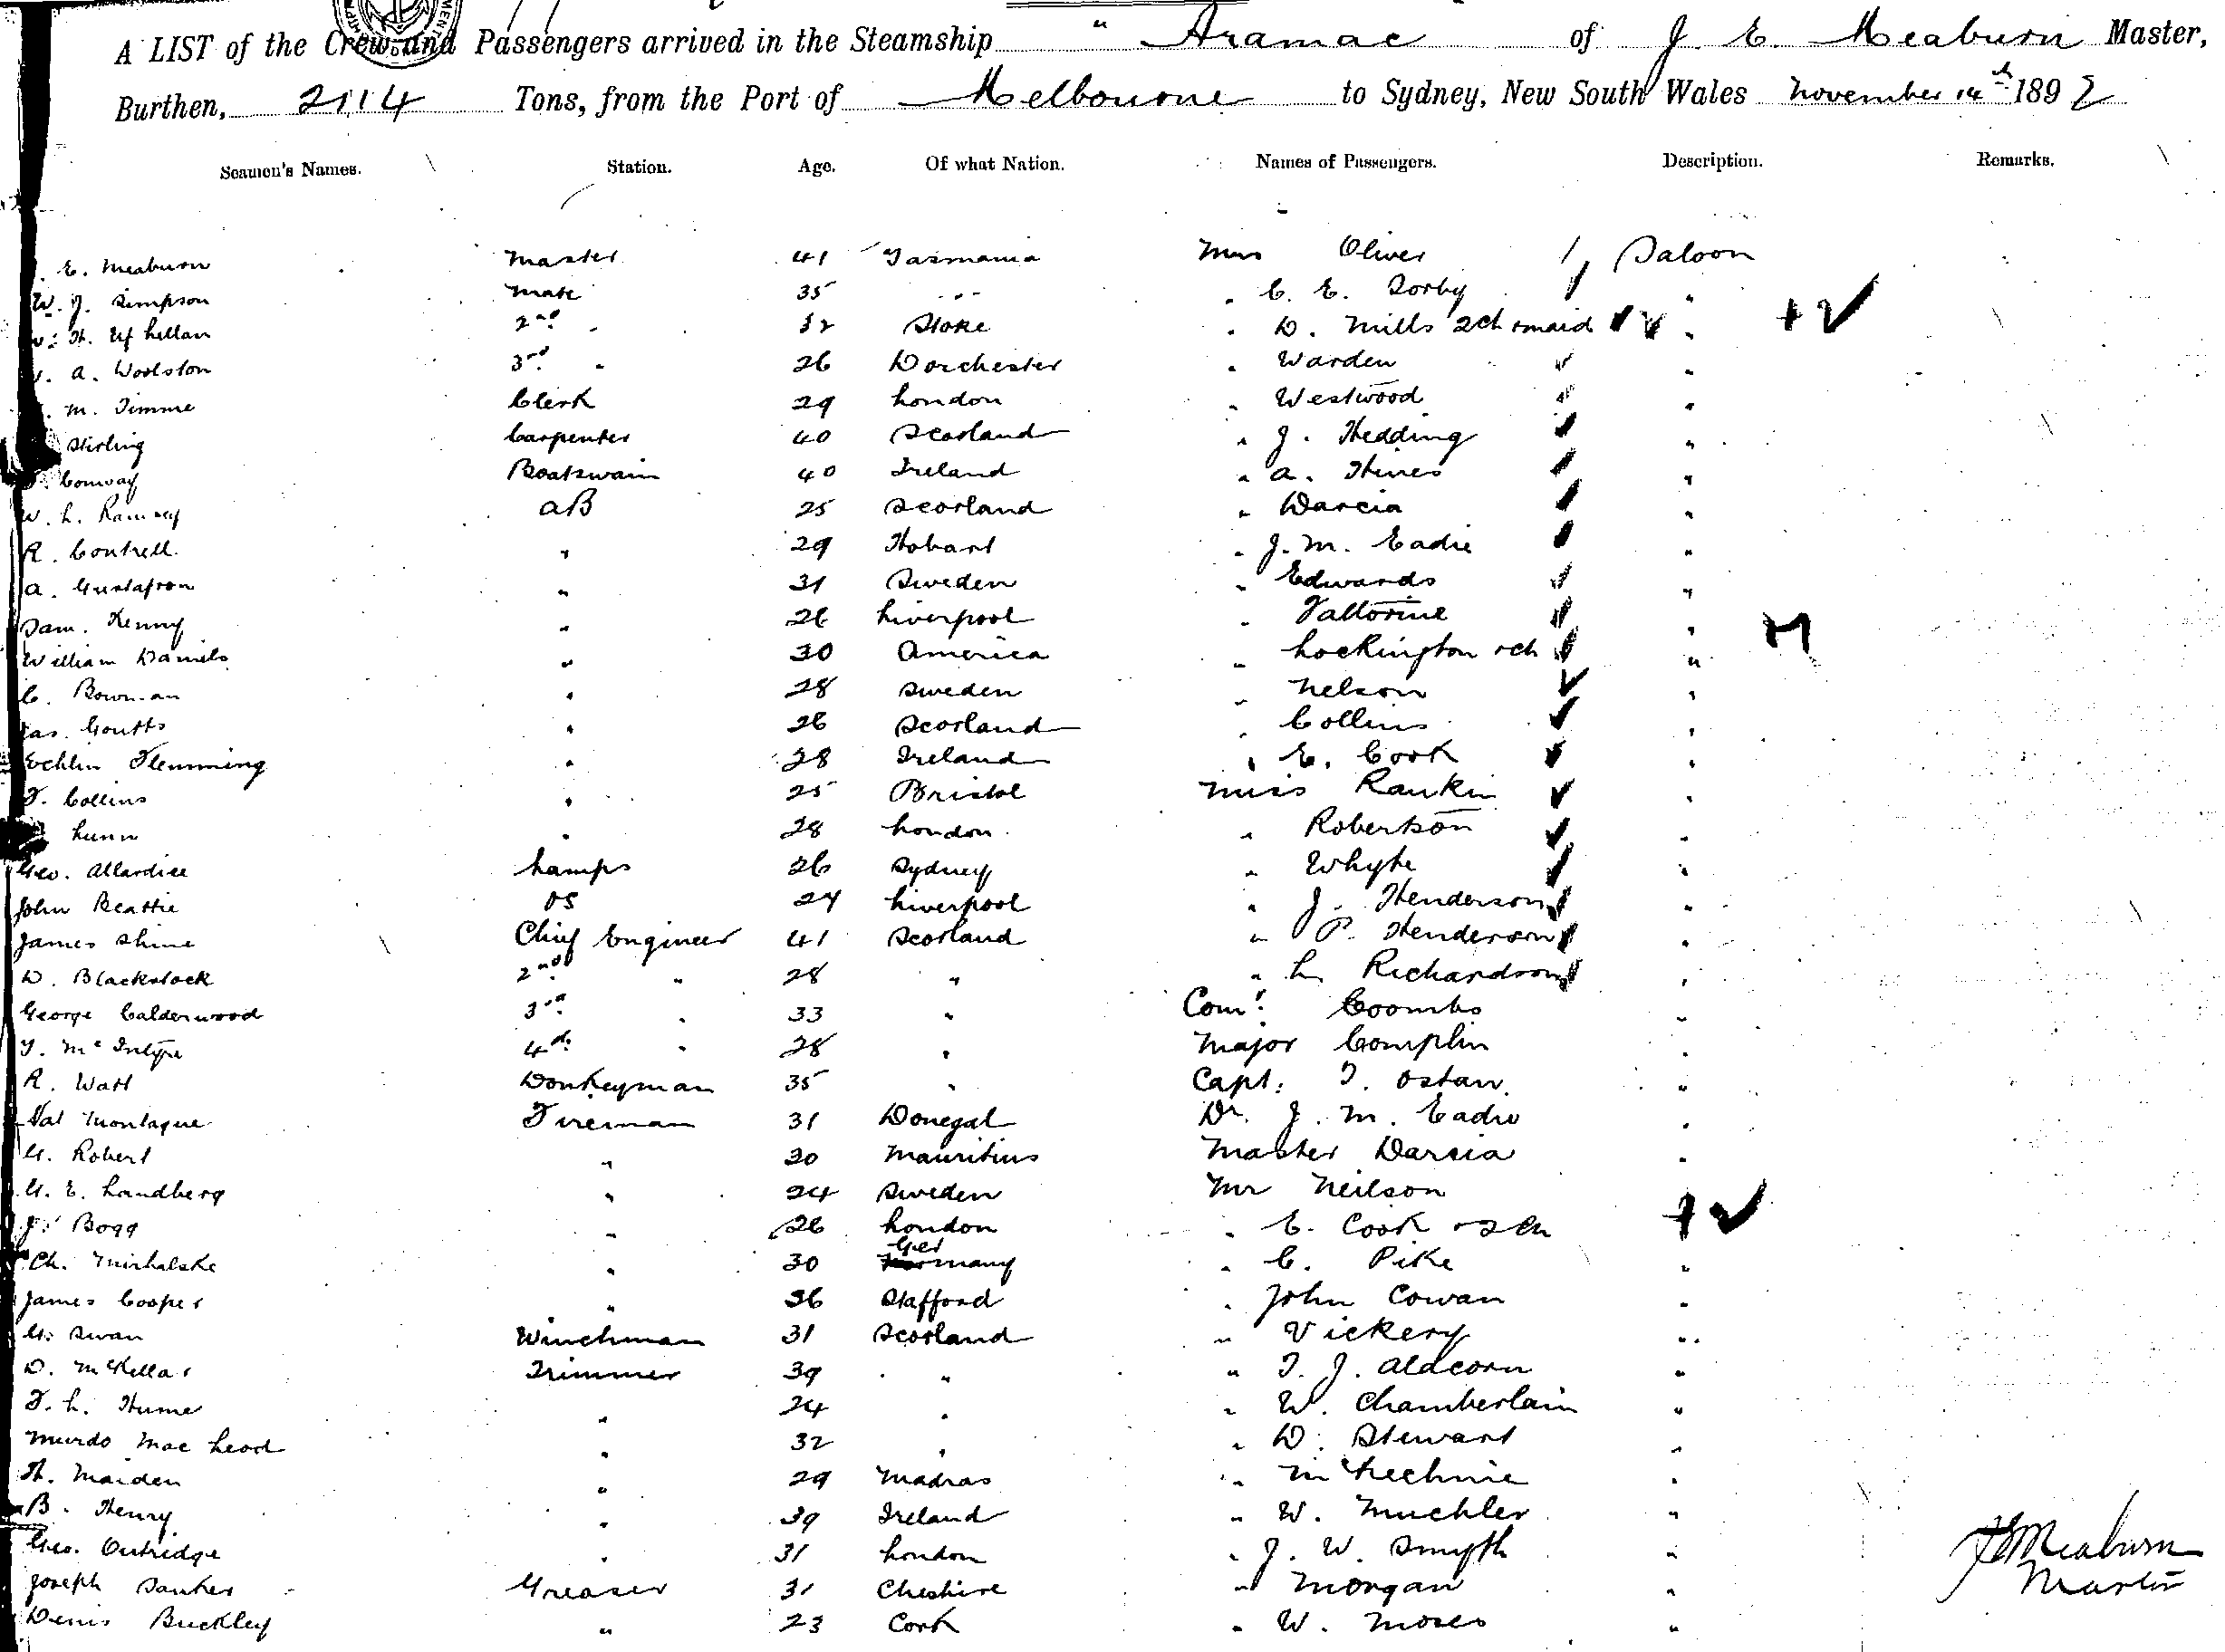 A LIST of the Crew and Passengers arrived in the Steamship "Aramac of J. E. Meaburn Master,
Burthen, 2114 Tons, from the Port of Melbourne to Sydney, New South Wales November 14th 1892
Seamen's Names. Station. Age. Of what Nation. Names of Passengers. Description. Remarks.
E. Meaburn Master 41 Tasmania Mrs Oliver 1 Saloon
W. J. Simpson Mate 35 " " C. E. Sorby "
H. 2nd " 32 Stoke " D. Mills 2ch & maid " + ✓
A. Woolston 3rd " 26 Dorchester " Warden "
M. Timme Clerk 29 London " Westwood "
Stirling Carpenter 40 Scotland " J. Hedding "
Conway Boatswain 40 Ireland " A. Hines "
W. L. Ramsay AB 25 Scotland " Darcia "
R. Contrell " 29 Hobart " J. M. Eadie "
A. Gustafson " 31 Sweden " Edwards "
Sam. Kenny " 26 Liverpool " "
William Daniels " 30 America " Lockington & ch "
C. Bowman " 28 Sweden " Nelson "
Jas. Coutts " 26 Scotland " Collins "
Echlin Flemming " 28 Ireland " E. Cook "
F. Collins " 25 Bristol Miss Rankin "
Lunn " 28 London " Robertson "
Geo. Allardice Lamps 26 Sydney " Whyte "
John Beattie OS 24 Liverpool " J. Henderson "
James Shine Chief Engineer 41 Scotland " P. Henderson "
D. Blackstock 2nd " 28 " " L Richardson "
George Calderwood 3rd " 33 " Comr. Coombs "
T. McIntyre 4th " 28 " Major Complin "
R. Watt Donkeyman 35 " Capt. T. "
Pat Montague Fireman 31 Donegal Dr. J. M. Eadie "
G. Robert " 30 Mauritius Master Darcia "
G. E. Landberg " 24 Sweden Mr Neilson "
J. Bogg " 26 London " E. Cook & 2 ch + ✓
Ch. " 30 Germany " C. Pike "
James Cooper " 36 Stafford " John Cowan "
G. Swan Winchman 31 Scotland " Vickery "
D. McKellar Trimmer 39 " " T. J. Aldcorn "
F. L. Hume " 24 " " W. Chamberlain "
Murdo Mac Leod " 32 " " D. Stewart "
H. Maiden " 29 Madras " McKechnie "
B. Henry " 39 Ireland " W. Muchler "
Geo. Outridge " 31 London " J. W. Smyth "
Joseph Greaser 31 Cheshire " Morgan "
Denis Buckley " 23 Cork " W. Moses "
J E Meaburn
Master